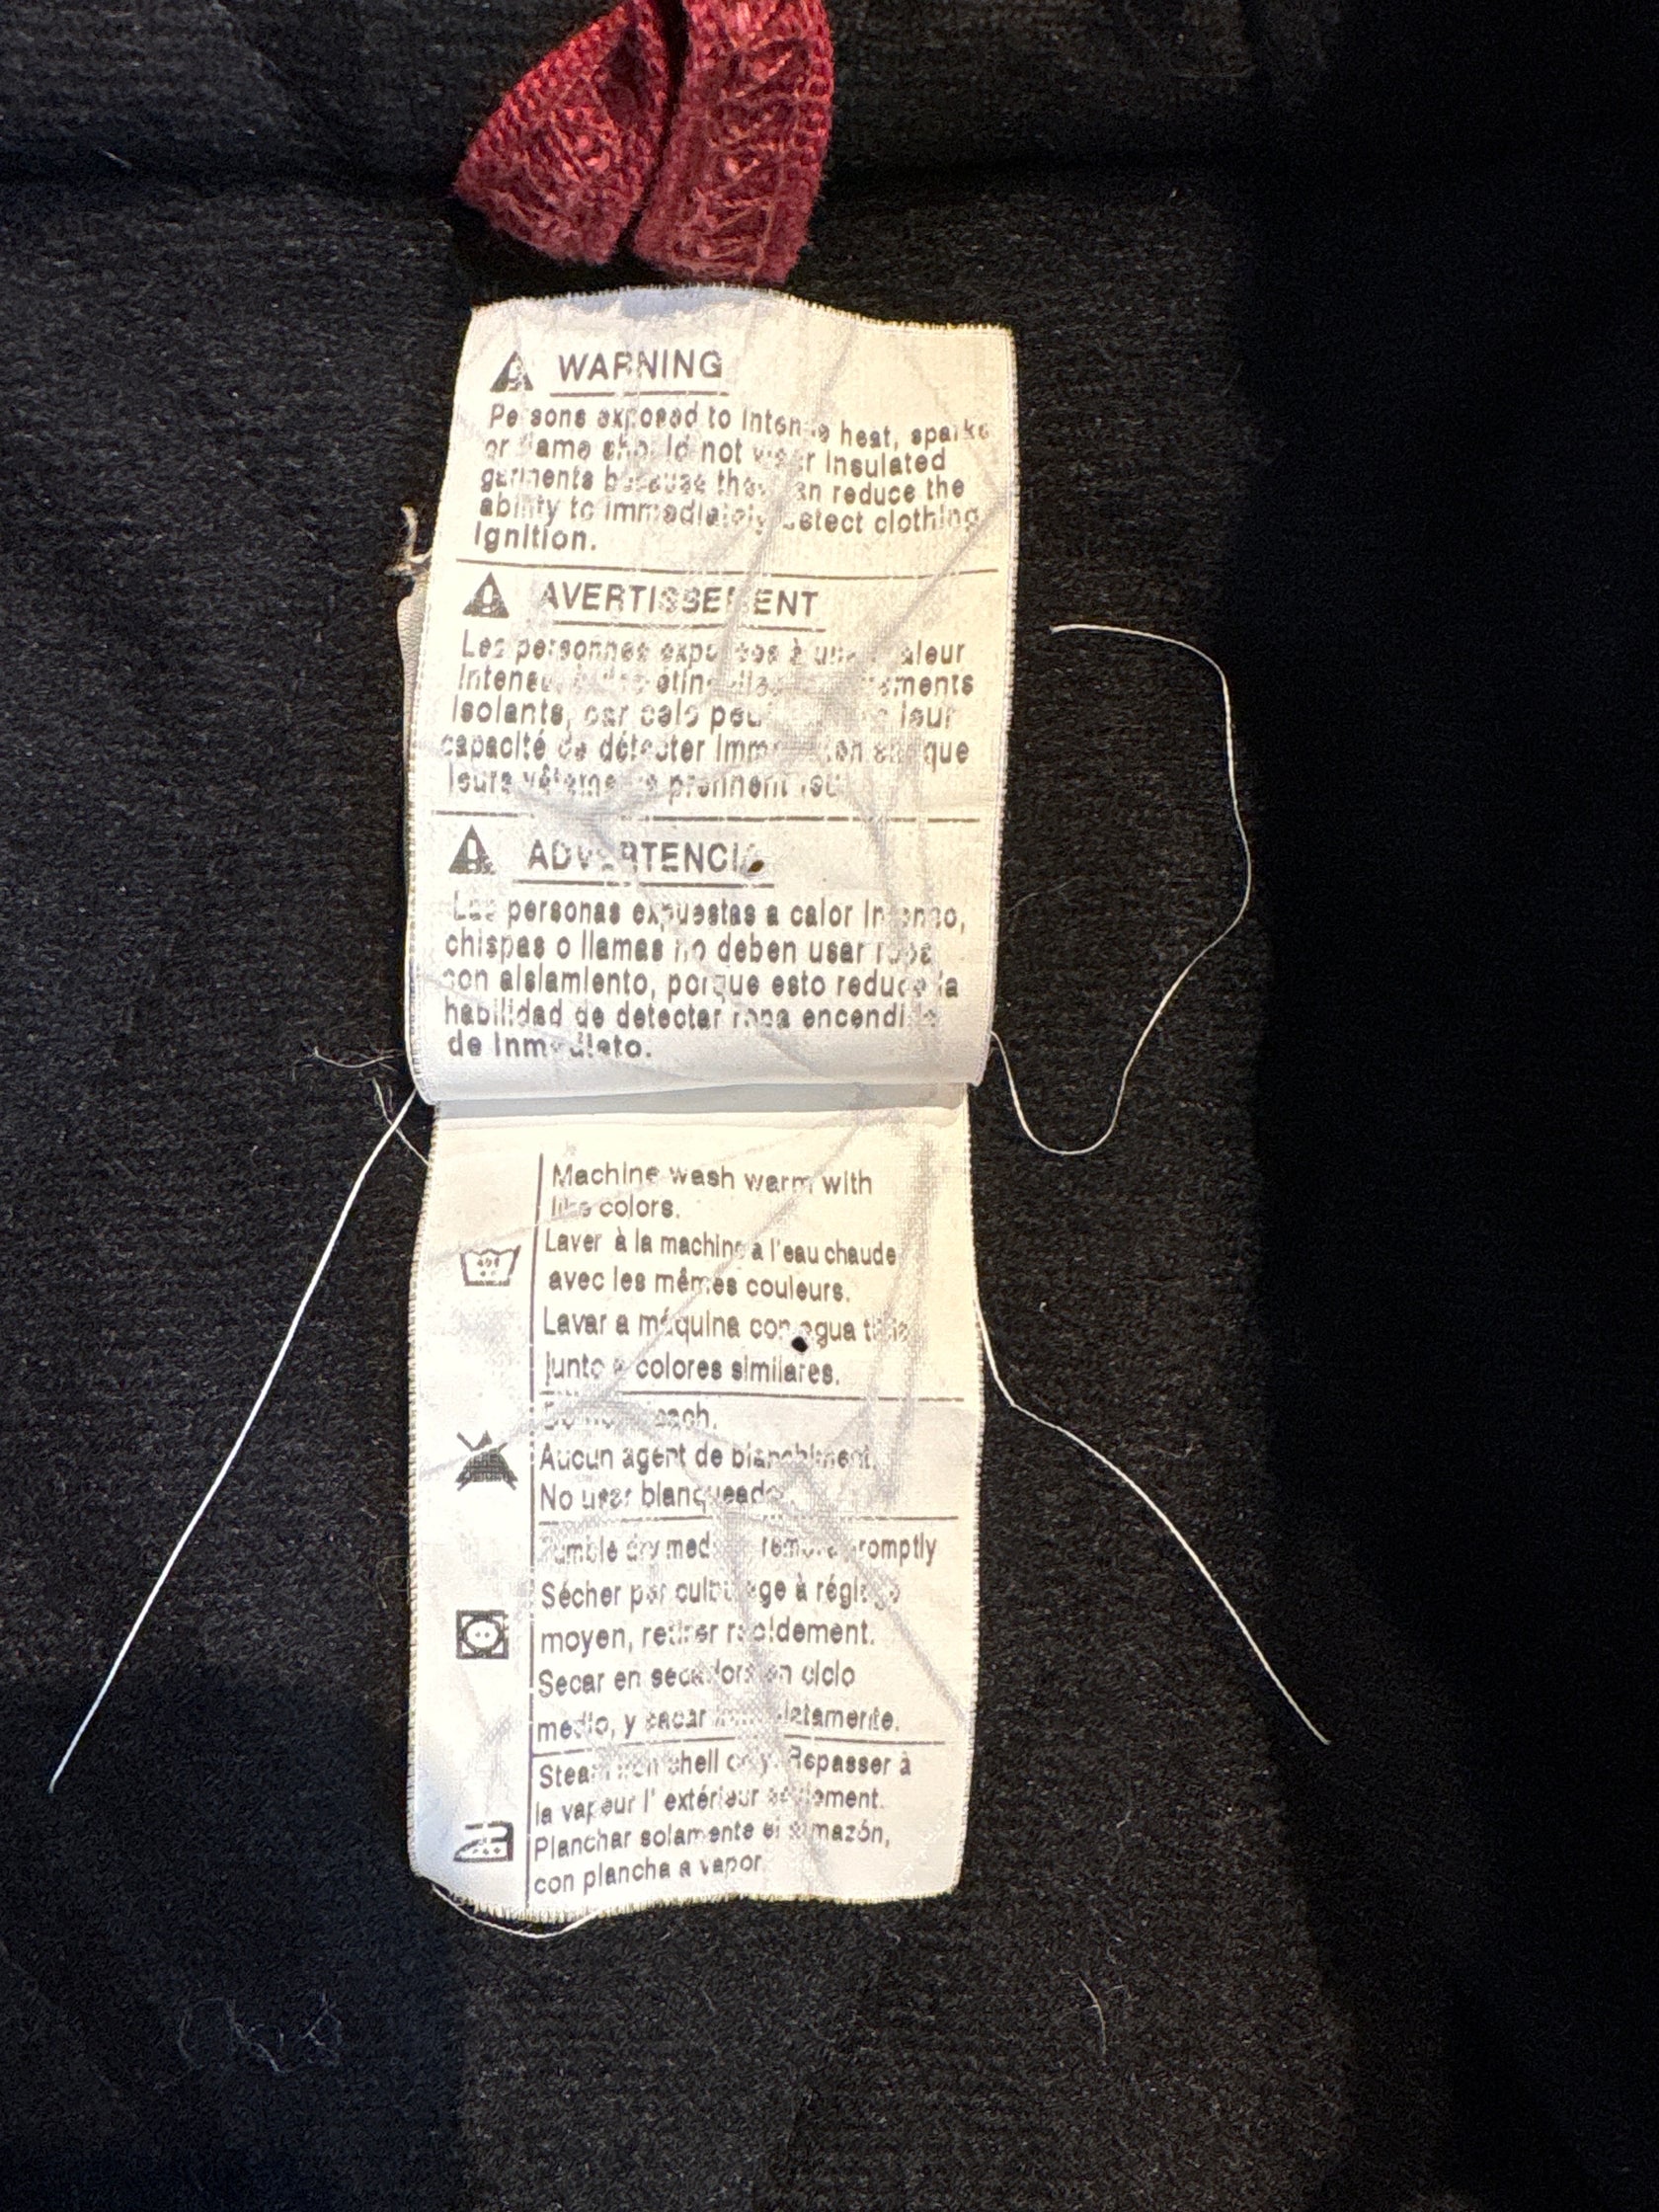 WARNING
Persons exposed to intense heat, sparks
or flame should not wear insulated
garments because they can reduce the
ability to immediately detect clothing
ignition.
AVERTISSEMENT
Les personnes exposées à une chaleur
intense, étincelles
isolants, car cela peut leur
capacité de détecter que
leurs vêtements prennent feu.
ADVERTENCIA
Las personas expuestas a calor intenso,
chispas o llamas no deben usar ropa
con aislamiento, porque esto reduce la
habilidad de detectar ropa encendida
de inmediato.
Machine wash warm with
like colors.
Laver à la machine a l'eau chaude
avec les mêmes couleurs.
Lavar a máquina con agua tibia
junto a colores similares.
Do not bleach.
Aucun agent de blanchiment.
No usar blanqueador
Tumble dry medium remove promptly
Sécher par culbutage à réglage
moyen, retirer rapidement.
Secar en secadora en ciclo
medio, y sacar inmediatamente.
Steam iron shell only. Repasser à
la vapeur l' extérieur seulement.
Planchar solamente el armazón,
con plancha a vapor